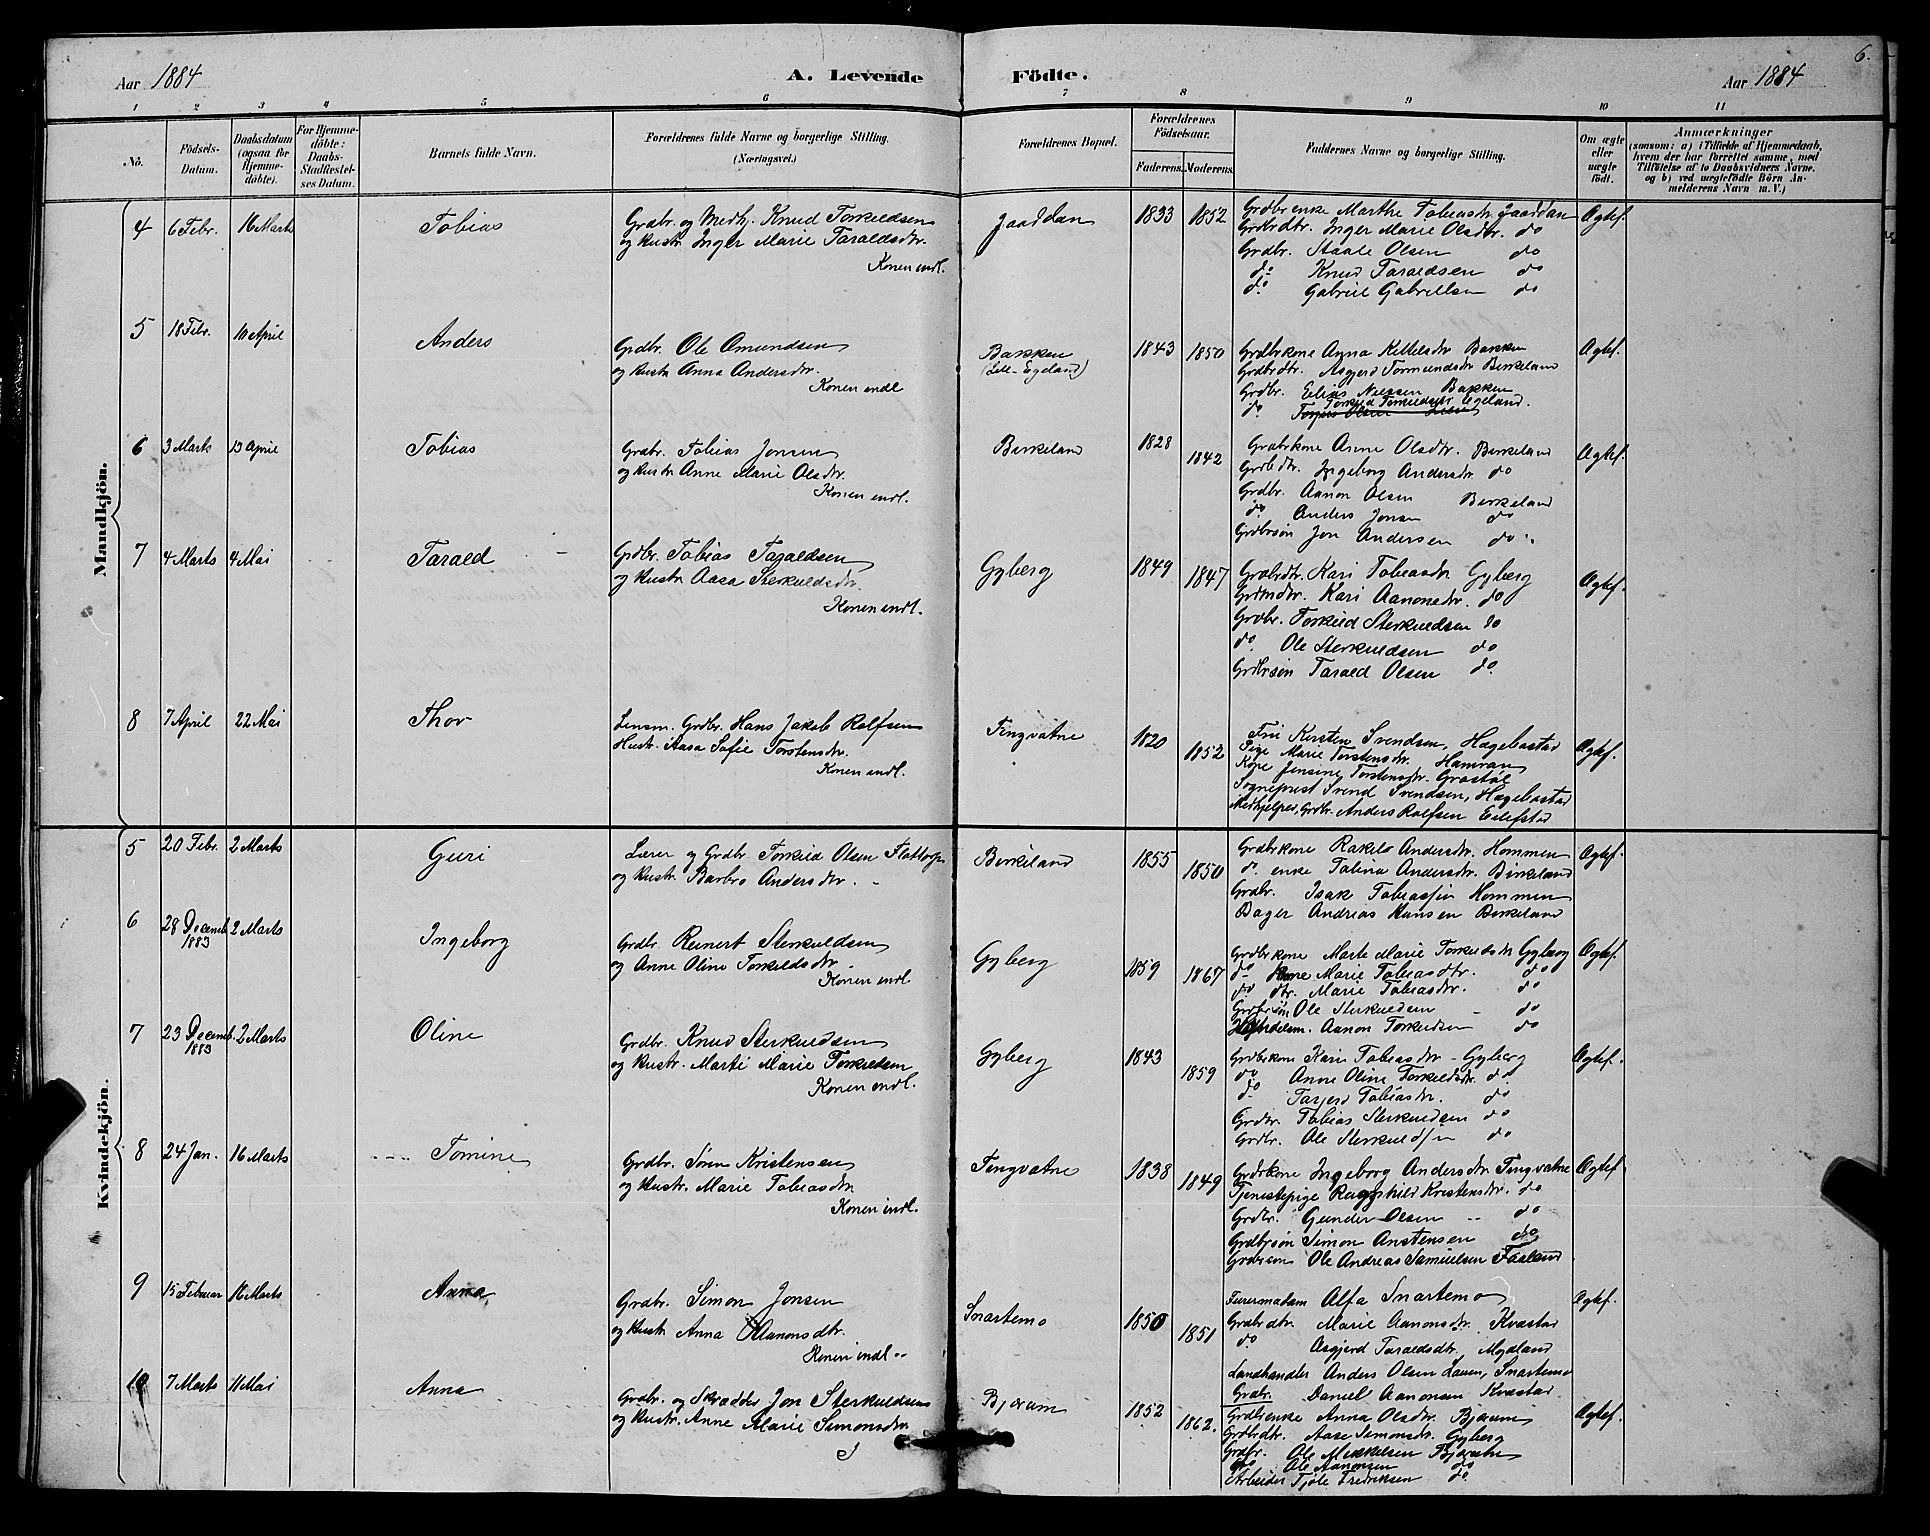 6.
Aar 1884 A. Levende Födte. Aar 1884
1 2 3 4 5 6 7 8 9 10 11
No. Födsels-Datum. Daabsdatum (ogsaa for Hjemme-döbte). For Hjemme-döbte: Daabs-Stadfæstel-ses Datum. Barnets fulde Navn. Forældrenes fulde Navne og borgerlige Stilling. (Næringsvei.) Forældrenes Bopæl. Forældrenes Födselsaar. Faderens. Moderens. Faddernes Navne og borgerlige Stilling. Om ægte eller uægte födt. Anmærkninger (saasom: a) i Tilfælde af Hjemmedaab, hvem der har forrettet samme, med Tilföielse af to Daabsvidners Navne. og b) ved uægtefödte Börn An-melderens Navn m. V.)
Mandkjön.
4 6 Febr. 16 Marts Tobias Grdbr. og Medhj. Knud Torkildsen Jaaddan 1833 1852 Grdbrenke Marthe Tobiasdtr. Jaaddan Ægtef.
og Hustr. Inger Marie Taraldsdtr. Grdbrdtr. Inger Marie Olsdtr. do
Konen indl. Grdbr. Staale Olsen do
do Knud Taraldsen do
do Gabriel Gabrielsen do
5 18 Febr. 10 April Anders Grdbr. Ole Omundsen Bakken 1843 1850 Grdbrkone Anna Kittelsdtr Bakken Ægtef.
og Hustr Anna Andersdtr. (Lill-Egeland) Grdbrdtr. Asgjerd Tormundsdtr Birkeland
Konen indl Grdbr. Elias Nilssen Bakken
do Torkild Torkildsen Egeland.
6 3 Marts 13 April Tobias Grdbr. Tobias Jonsen Birkeland 1828 1842 Grdbrkone Anne Olsdtr. Birkeland Ægtef.
og Hustr Anne Marie Olsdtr. Grdbdtr. Ingeborg Andersdtr do
Konen indl. Grdbr. Aanon Olsen Birkeland
do Anders Jonsen do
Grdbrsön Jon Andersen do
7 4 Marts 4 Mai Tarald Grdbr. Tobias Taraldsen Gyberg 1849 1847 Grdbrdtr. Kari Tobiasdtr Gyberg Ægtef.
og Hustr Aasa Sterkuldsdtr. Kari Aanonsdtr. do
Konen indl. Grdbr. Torkild Sterkuldsen do
do Ole Sterkuldsen do
Grdbrsön Tarald Olsen do
8 7 April 22 Mai Thor Lensm. Grdbr. Hans Jakob Rolfsen Tingvatne 1820 1852 Fru Kirsten Svendsen, Hægebostad Ægtef.
Hustr. Aasa Sofie Torstensdtr. Pige Marie Torstensdtr. Hamran
Konen indl. Kone Jensine Torstensdtr.
Sogneprest Svend Svendsen, Hægebostad
Medhjelper, Grdbr. Anders Rolfsen Eilefstad
Kvindekjön.
5 20 Febr. 2 Marts Guri Lærer og Grdbr Torkild Olsen Birkeland 1855 1850 Grdbrkone Andersdtr. Hommen Ægtef.
og Hustr. Barbro Andersdtr. do enke Tobina Andersdtr. Birkeland
Grdbr. Isak Hommen
Bager Andreas Hansen Birkeland
6 28 Decemb 1883 2 Marts Ingeborg Grdbr. Reinert Sterkuldsen Gyberg 1859 1867 Grdbrkone Marte Marie Torkildsdtr Gyberg Ægtef.
og Anne Oline Torkildsdtr do Kone Marie Tobiasdtr. do
Konen indl. do dtr. Marie Tobiasdtr. do
Grdbrsön Ole Sterkuldsen do
Aanon Torkildsen do
7 23 Decemb. 1883 2 Marts Oline Grdbr. Knud Sterkuldsen Gyberg 1843 1859 Grdbrkone Kari Tobiasdtr Gyberg Ægtef.
og Hustr. Marte Marie Torkildsen do Anne Oline Torkildsdtr. do
Konen indl. do Tobiasdtr. do
Grdbr. Tobias Sterkuldsen do
Grdbr. Ole Sterkuldsen do
8 24 Jan. 16 Marts Tomine Grdbr. Sören Kristensen Tingvatne 1838 1849 Grdbrkone Ingeborg Andersdtr Tingvatne Ægtef.
og Hustr. Marie Tobiasdtr Tjenestepige Ragnhild Kristensdtr. do
Konen indl. Grdbr. Gunder Olsen do
Grdbrsön Simon Anstensen do
Grdbrsön Ole Andreas Samuelsen Faaland
9 15 Februar 16 Marts Anna Grdbr. Simon Jonsen Snartemo 1850 1851 Alfa Snartemo Ægtef.
og Hustr Anna Aanonsdtr. Grdbrdtr. Marie Aanonsdtr. Kvæstad
Konen indl do Asgjerd Taraldsdtr. Mydland
Landhandler Anders Olsen Snartemo
Grdbr. Daniel Aanonsen Kvæstad
10 7 Marts 11 Mai Anna Grdbr. og Skrædder Jon Sterkuldsen Bjærum 1852 1862. Grdbrenke Anna Olsdtr. Bjærum Ægtef.
og Hustr. Anne Marie Simonsdtr Grdbrdtr. Aase Simonsdtr. Gyberg
Grdbr. Ole Mikkelsen Bjærum
do Ole Aanonsen do
Arbeider Tjöle Fredriksen do